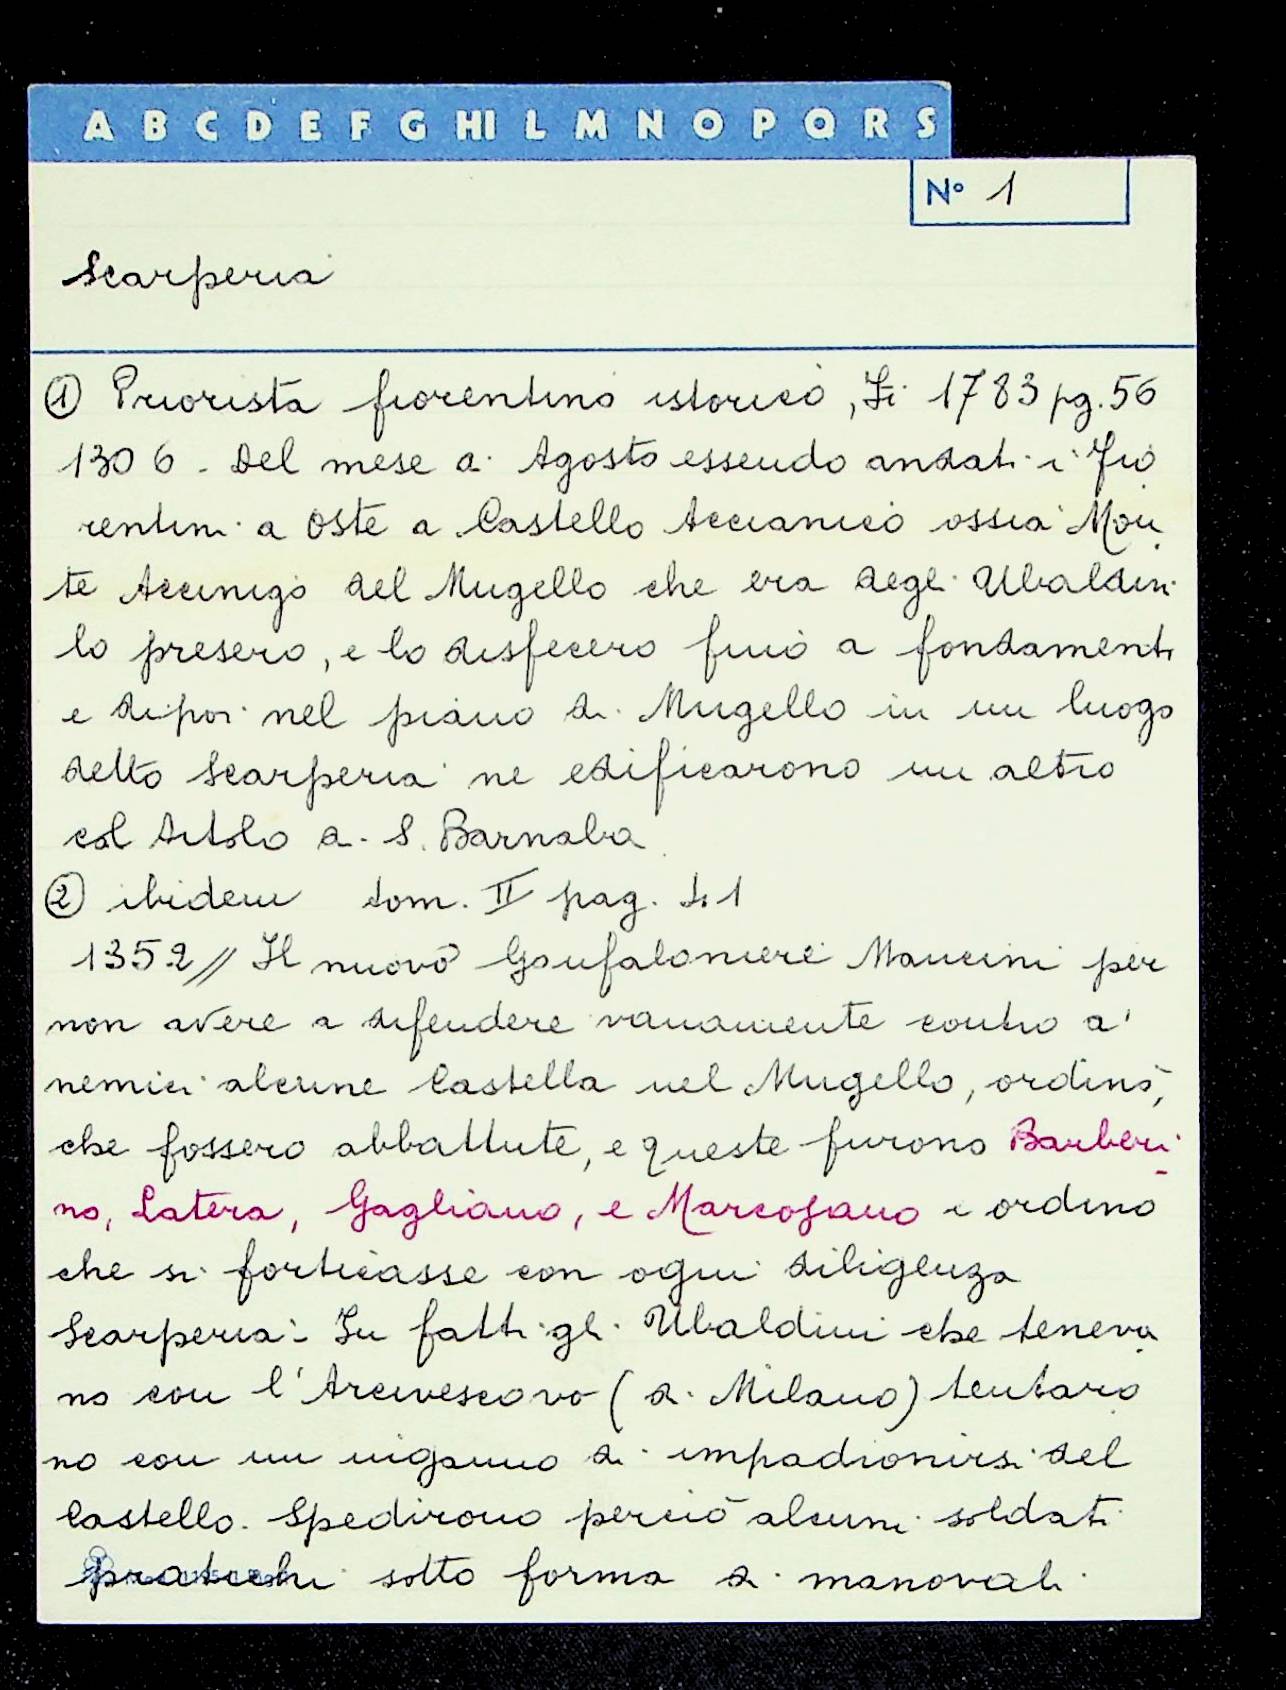 A B C D E F G HI L M N O P Q R S
N° 1
Scarperia
① Priorista fiorentino istorico, Fi 1783 pg. 56
1306 - Del mese di Agosto essendo andati i Fio
rentini a Oste a Castello Accianico ossia Mon
te Accinigo del Mugello che era degli Ubaldini
lo presero, e lo disfecero fino a fondamenti
e dipoi nel piano di Mugello in un luogo
detto Scarperia ne edificarono un altro
col titolo di S. Barnaba
② ibidem tom. II pag. 41
1352 // Il nuovo Gonfaloniere Mancini per
non avere a difendere vanamente contro a'
nemici alcune Castella nel Mugello, ordinò,
che fossero abbattute, e queste furono Barberi
no, Latera, Gagliano, e Marcojano e ordino
che si forticasse con ogni diligenza
Scarperia - In fatti gli Ubaldini che teneva
no con l'Arcivescovo (di Milano) tentaro
no con un niganno di impadionirsi del
Castello. Spedirono perciò alcuni soldati
pratichi sotto forma di manovali